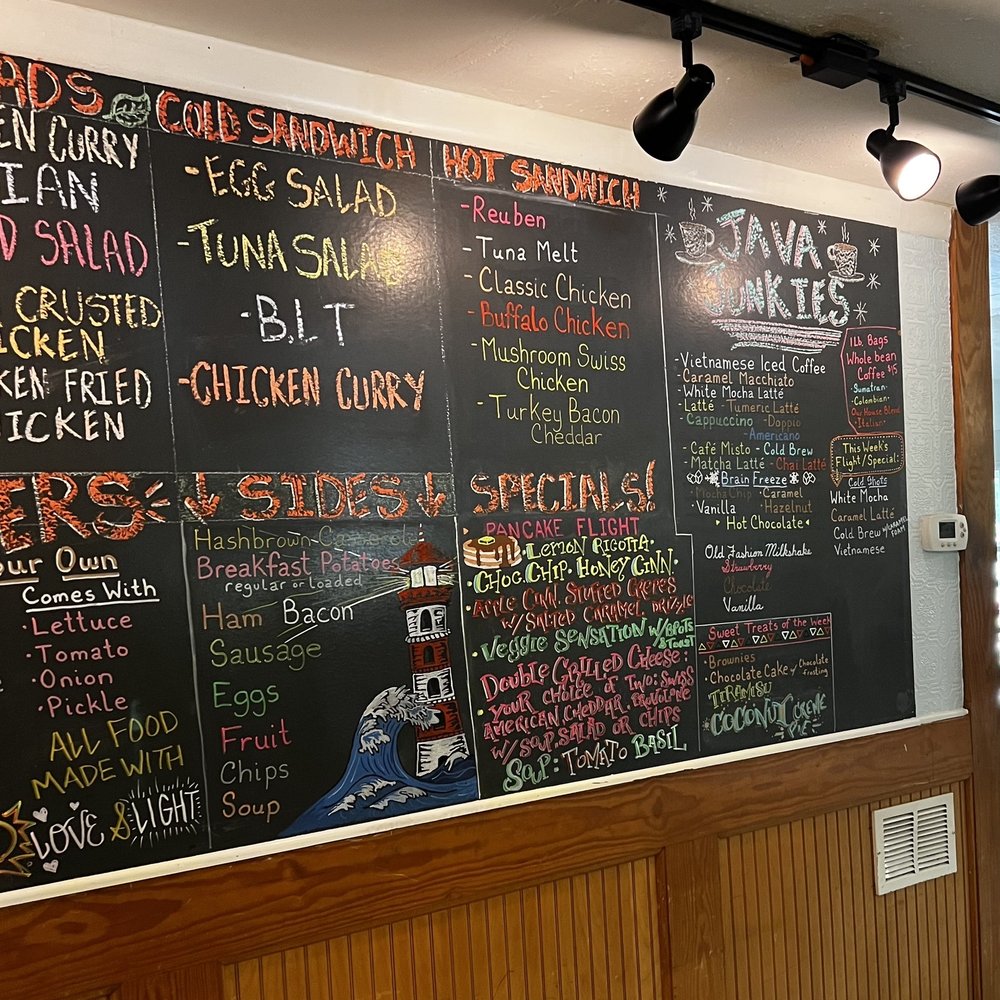 ADS
EN CURRY
IAN
D SALAD
CRUSTED
ICKEN
KEN FRIED
HICKEN
COLD SANDWICH
-EGG SALAD
-TUNA SALAD
-B.L.T
-CHICKEN CURRY
HOT SANDWICH
-Reuben
-Tuna Melt
-Classic Chicken
-Buffalo Chicken
-Mushroom Swiss
Chicken
-Turkey Bacon
Cheddar
ERS
our Own
Comes With
·Lettuce
·Tomato
·Onion
·Pickle
ALL FOOD
MADE WITH
LOVE & LIGHT
SIDES
Hashbrown Casserole
Breakfast Potatoes
regular or loaded
Ham Bacon
Sausage
Eggs
Fruit
Chips
Soup
SPECIALS!
PANCAKE FLIGHT
·LEMON RICOTTA·
·CHOC. CHIP. HONEY CINN.
·APPLE CINN. STUFFED CREPES
W/ SALTED CARAMEL DRIZZLE
·VEGGIE SENSATION W/ BPOTS
& TOAST
DOUBLE GRILLED CHEESE:
YOUR CHOICE OF TWO: SWISS
AMERICAN, CHEDDAR, PROVOLONE
W/ SOUP, SALAD OR CHIPS
SOUP: TOMATO BASIL
JAVA
JUNKIES
-Vietnamese Iced Coffee
-Caramel Macchiato
-White Mocha Latté
-Latté -Tumeric Latté
-Cappuccino -Doppio
-Americano
-Café Misto -Cold Brew
-Matcha Latté -Chai Latté
Brain Freeze
·Mocha Chip ·Caramel
·Vanilla ·Hazelnut
·Hot Chocolate·
Old Fashion Milkshake
Strawberry
Chocolate
Vanilla
1 Lb. Bags
Whole bean
Coffee $15
-Sumatran-
-Colombian-
Our House Blend
-Italian-
This Week's
Flight/Special:
Cold Shots
White Mocha
Caramel Latté
Cold Brew w/ CARAMEL FOAM
Vietnamese
Sweet Treats of the Week
·Brownies
·Chocolate Cake w/ Chocolate
frosting
TIRAMISU
COCONUT CREME
PIE